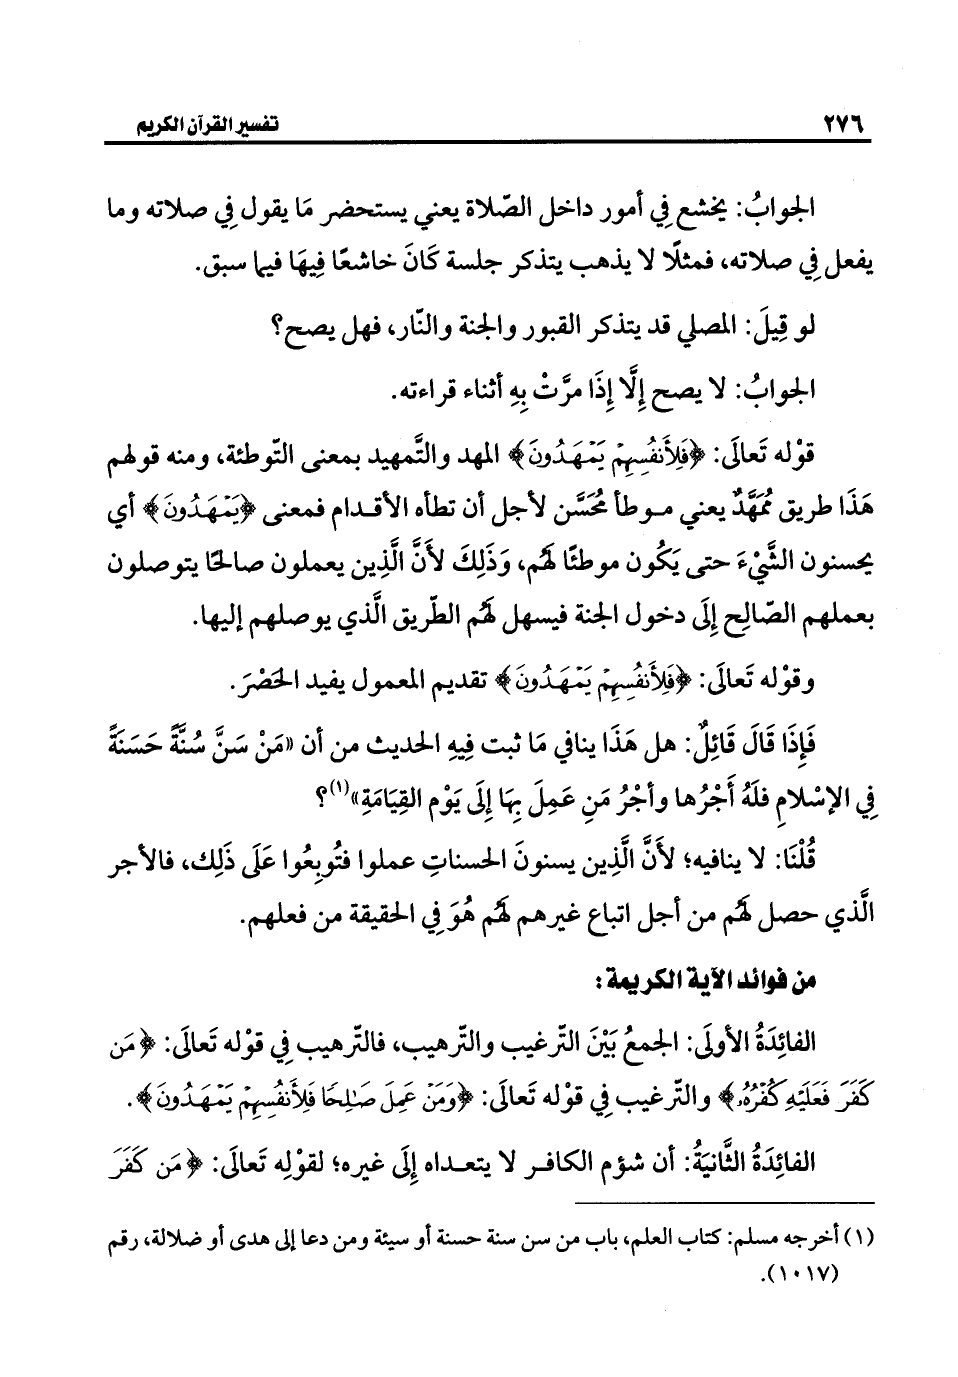 ٢٧٦ تفسير القرآن الكريم
الجوابُ: يخشع فِي أمور داخل الصَّلاة يعني يستحضر مَا يقول فِي صلاته وما
يفعل فِي صلاته، فمثلًا لا يذهب يتذكر جلسة كَانَ خاشعًا فِيهَا فيما سبق.
لو قِيلَ: المصلي قد يتذكر القبور والجنة والنَّار، فهل يصح؟
الجوابُ: لا يصح إِلَّا إِذَا مرَّتْ بِهِ أثناء قراءته.
قوْله تَعالَى: ﴿فَلِأَنفُسِهِمْ يَمْهَدُونَ﴾ المهد والتَّمهيد بمعنى التَّوطئة، ومنه قولهم
هَذَا طريق مُمَهَّدٌ يعني موطأ مُحَسَّن لأجل أن تطأه الأقدام فمعنى ﴿يَمْهَدُونَ﴾ أي
يحسنون الشَّيْءَ حتى يَكُون موطئًا لهُم، وَذَلِكَ لأَنَّ الَّذِين يعملون صالحًا يتوصلون
بعملهم الصَّالِح إِلَى دخول الجنة فيسهل لهُم الطَّريق الَّذي يوصلهم إليها.
وقوْله تَعالَى: ﴿فَلِأَنفُسِهِمْ يَمْهَدُونَ﴾ تقديم المعمول يفيد الحَصْرَ.
فَإِذَا قَالَ قَائِلٌ: هل هَذَا ينافي مَا ثبت فِيهِ الحديث من أن «مَنْ سَنَّ سُنَّةً حَسَنَةً
فِي الإِسْلامِ فلَهُ أَجْرُها وأجْرُ مَنِ عَمِلَ بِهَا إِلَى يَوْمِ القِيَامَةِ»(١)؟
قُلْنَا: لا ينافيه؛ لأَنَّ الَّذِين يسنونَ الحسناتِ عملوا فتُوبِعُوا عَلَى ذَلِك، فالأجر
الَّذي حصل لهُم من أجل اتباع غيرهم لهُم هُوَ فِي الحقيقة من فعلهم.
من فوائد الآية الكريمة:
الفائِدَةُ الأولَى: الجمعُ بَيْنَ التَّرغيب والتَّرهيب، فالتَّرهيب فِي قوْله تَعالَى: ﴿مَن
كَفَرَ فَعَلَيْهِ كُفْرُهُۥ﴾ والتَّرغيب فِي قوْله تَعالَى: ﴿وَمَنْ عَمِلَ صَٰلِحًا فَلِأَنفُسِهِمْ يَمْهَدُونَ﴾.
الفائِدَةُ الثَّانيَةُ: أن شؤم الكافر لا يتعداه إِلَى غيره؛ لقوْلِه تَعالَى: ﴿مَن كَفَرَ
(١) أخرجه مسلم: كتاب العلم، باب من سن سنة حسنة أو سيئة ومن دعا إلى هدى أو ضلالة، رقم
(١٠١٧).